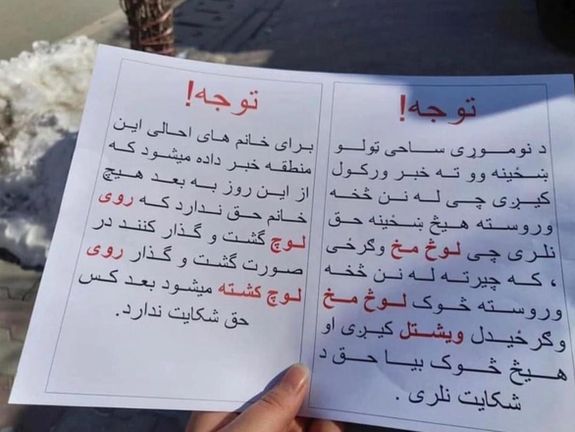 توجه!
د نوموړی ساحی ټولو
ښځینه وو ته خبر ورکول
کیږی چی له نن څخه
وروسته هیڅ ښځینه حق
نلری چی لوڅ مخ وګرځی
، که چیرته له نن څخه
وروسته څوک لوڅ مخ
وګرځیدل ویشتل کیږی او
هیڅ څوک بیا حق د
شکایت نلری .
توجه!
برای خانم های احالی این
منطقه خبر داده میشود که
از این روز به بعد هیچ
خانم حق ندارد که روی
لوچ گشت و گذار کنند در
صورت گشت و گذار روی
لوچ کشته میشود بعد کس
حق شکایت ندارد.